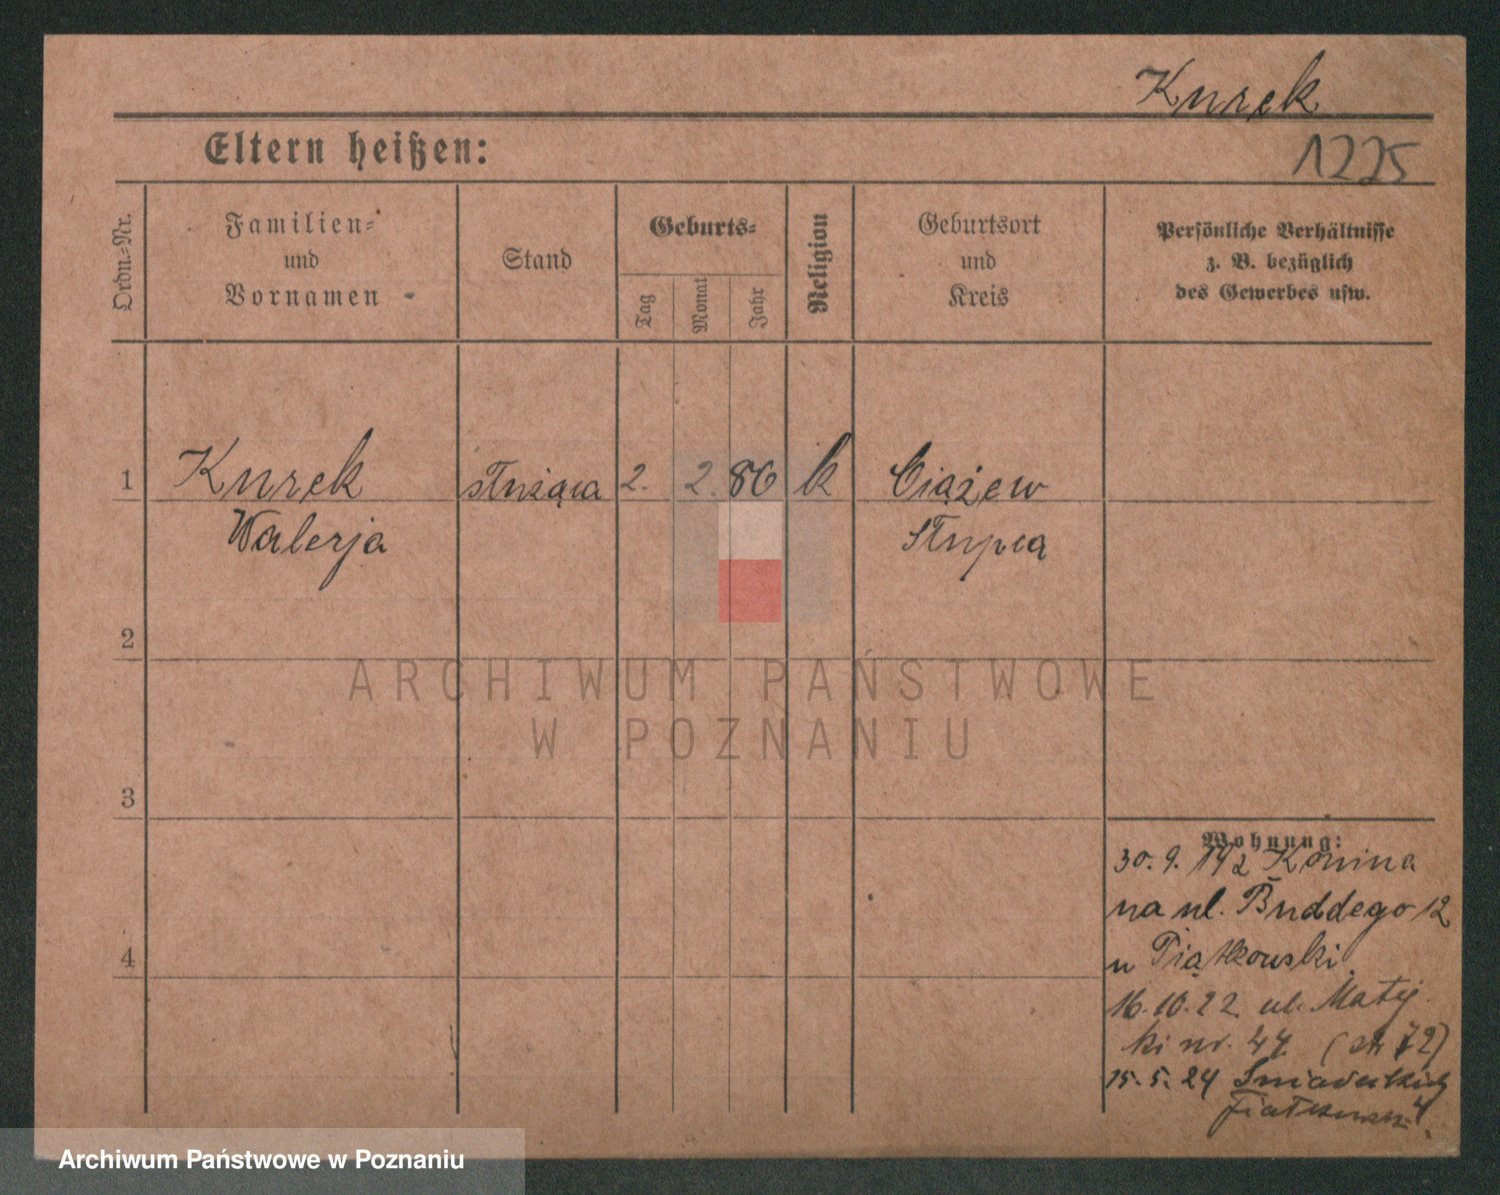 Kurek
Eltern heißen:
1225
Ordn.-Nr.
Familien-
und
Vornamen
Stand
Geburts-
Tag
Monat
Jahr
Religion
Geburtsort
und
Kreis
Persönliche Verhältnisse
z. B. bezüglich
des Gewerbes usw.
1 Kurek służąca 2. 2. 86 k Ciążew
Walerja Słupca
2
ARCHIWUM PAŃSTWOWE
W POZNANIU
3
Wohnung:
30. 9. 192 Konina
na ul. Buddego 12
4
u Piątkowski
16.10.22 ul. Matej
ki nr. 47
15.5.24 Śniadeckich
Archiwum Państwowe w Poznaniu